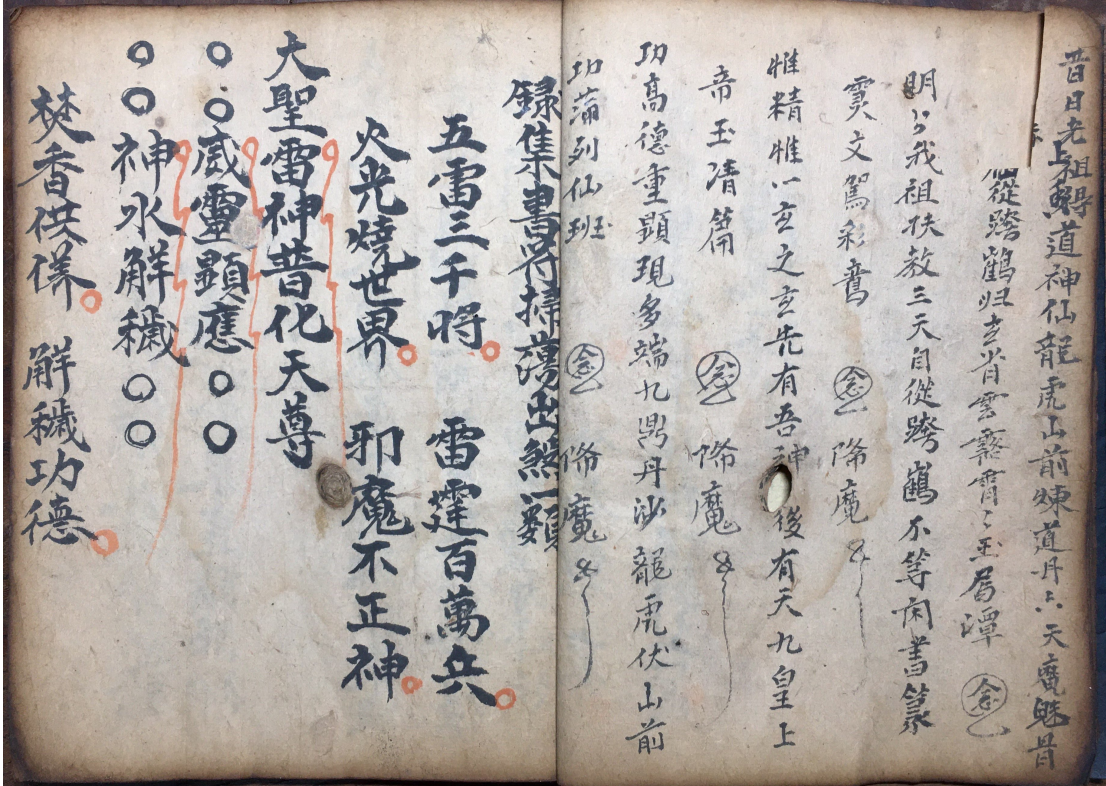 昔日老祖歸道神仙龍虎山前煉道丹六天魔魅皆
從跨鶴归去省雲霧霄〻玉君潭 念
明公我祖扶教三天自從跨鶴不等闲書篆
雲文駕彩鸞 念 降魔
惟精惟一玄之玄先有吾神後有天九皇上
帝玉清篇 念 降魔
功高德重顯現多端九鼎丹沙龍虎伏山前
功蒲列仙班 念 降魔
録集書符掃蕩出煞一類
五雷三千將 雷霆百萬兵
火光燒世界 邪魔不正神
大聖雷神普化天尊
○○威靈顯應○○
○○神水解穢○○
焚香供養 解穢功德